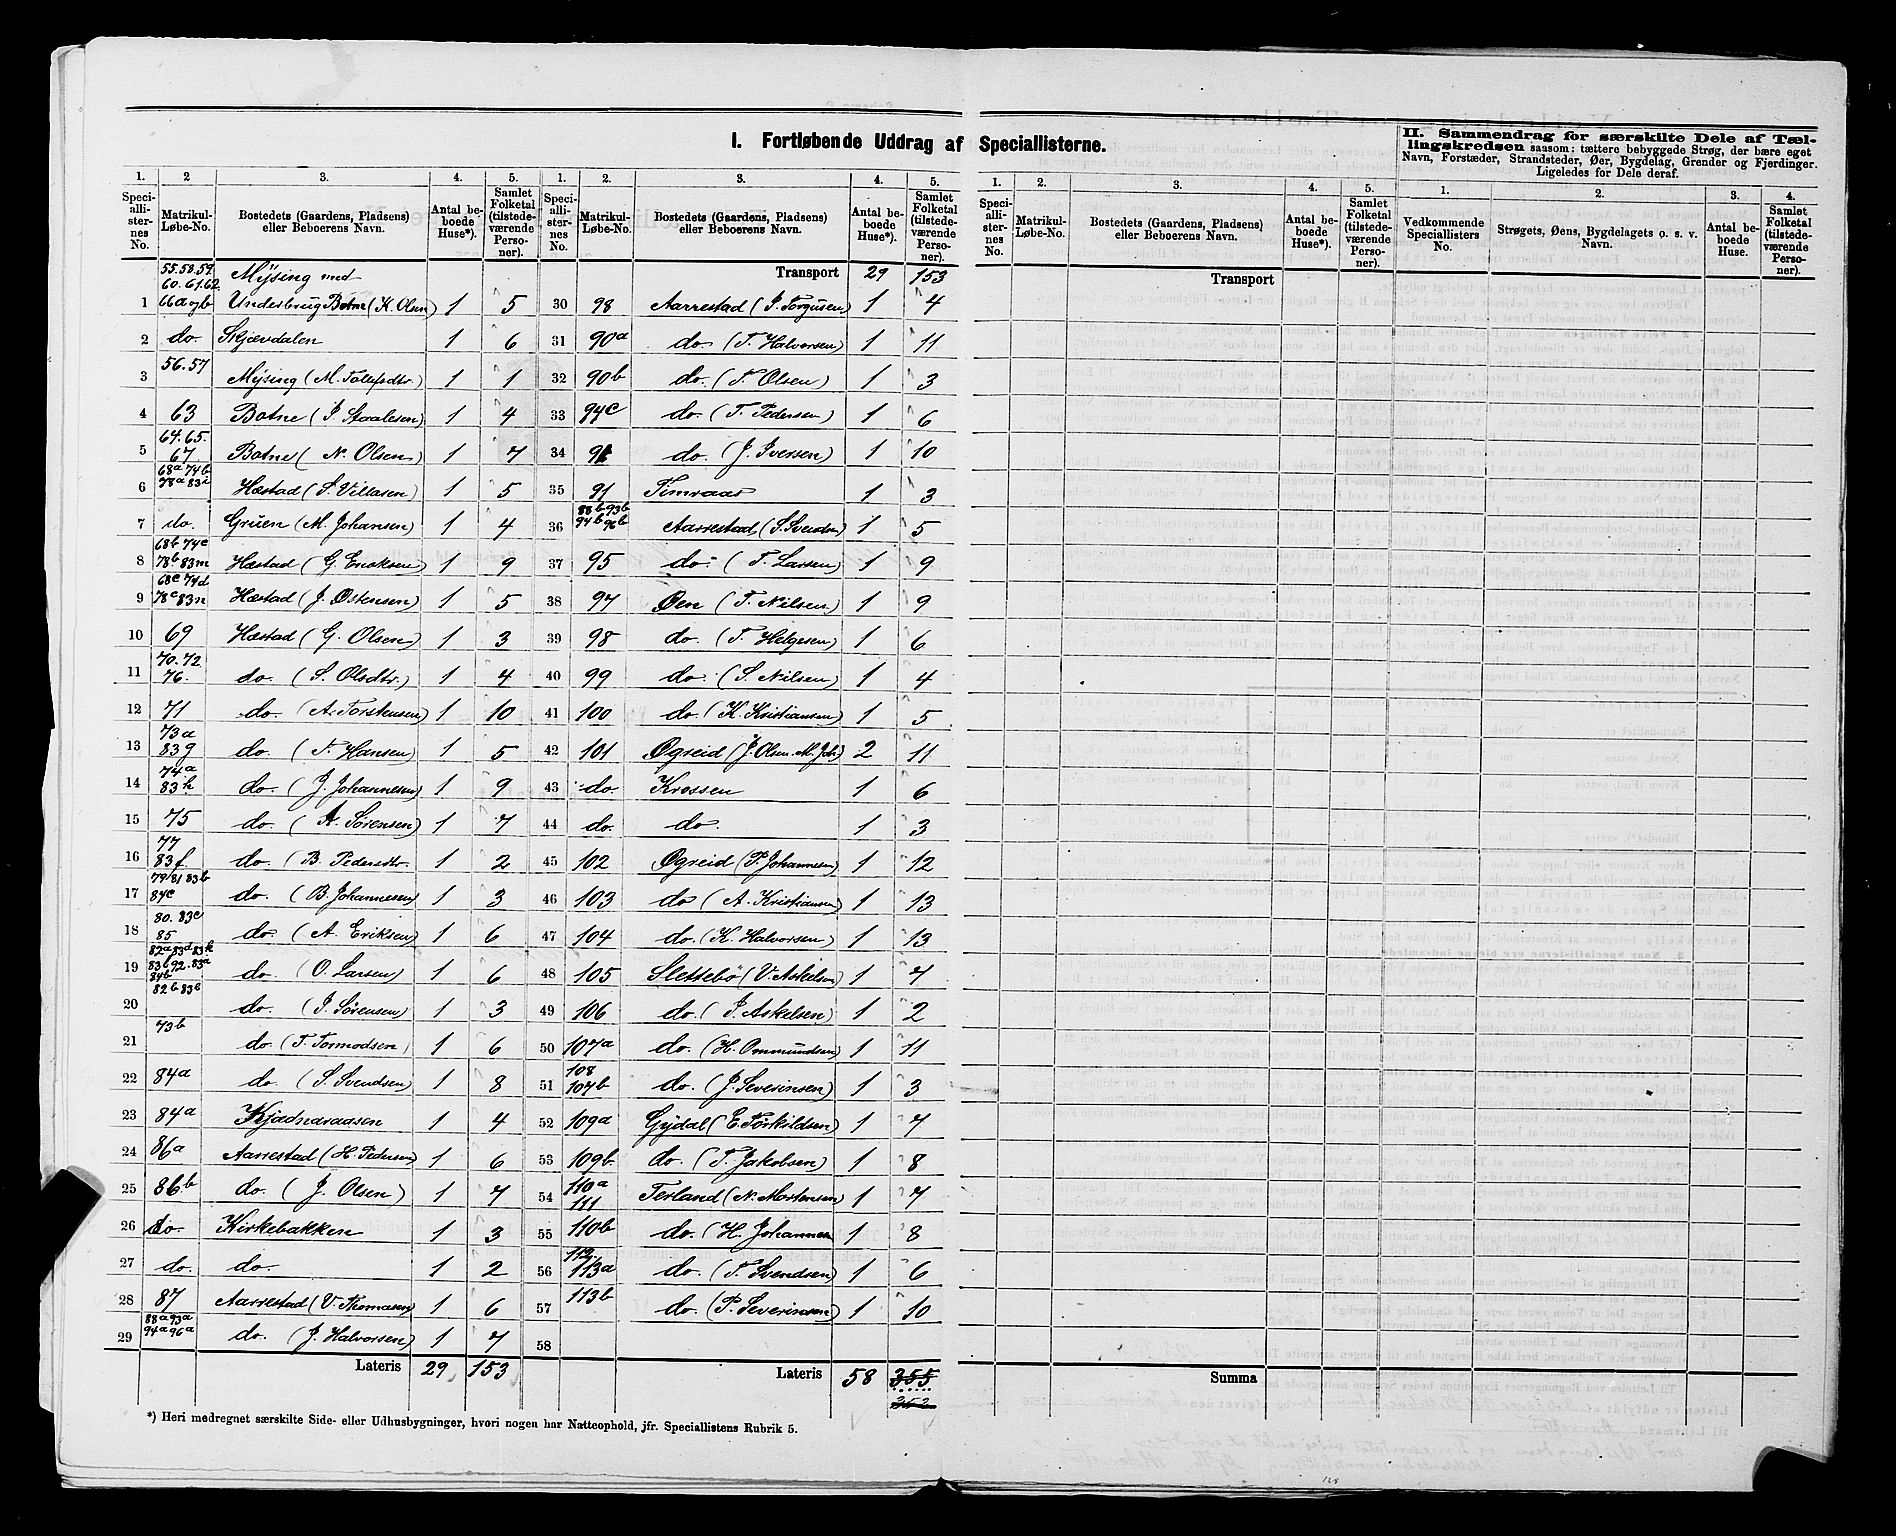 I. Fortløbende Uddrag af Speciallisterne.
II. Sammendrag for særskilte Dele af Tællingskredsen saasom: tættere bebyggede Strøg, der bære eget Navn, Forstæder, Strandsteder, Øer, Bygdelag, Grender og Fjerdinger. Ligeledes for Dele deraf.
1. 2 3. 4. 5. 1. 2. 3. 4. 5. 1. 2. 3. 4. 5. 1. 2. 3. 4.
Speciallisternes No. Matrikul-Løbe-No. Bostedets (Gaardens, Pladsens) eller Beboerens Navn. Antal beboede Huse*). Samlet Folketal (tilstedeværende Personer).
Speciallisternes No. Matrikul-Løbe-No. Bostedets (Gaardens, Pladsens) eller Beboerens Navn. Antal beboede Huse*). Samlet Folketal (tilstedeværende Personer).
Speciallisternes No. Matrikul-Løbe-No. Bostedets (Gaardens, Pladsens) eller Beboerens Navn. Antal beboede Huse*). Samlet Folketal (tilstedeværende Personer).
Vedkommende Speciallisters No. Strøgets, Øens, Bygdelagets o. s. v. Navn. Antal beboede Huse. Samlet Folketal (tilstedeværende Personer).
55.58.59 60.61.62. Mÿsing med
1 66a og b Underbrug Botne (K. Olsen) 1 5
2 do. Skjævdalen 1 6
3 56.57 Mÿsing (M. Tollefsdtr.) 1 1
4 63 Botne (J. Staalesen) 1 4
5 64.65. 67. Botne (N. Olsen) 1 7
6 68a 74b 78a 83i Hæstad (S. Villasen) 1 5
7 do. Gruen (M. Johansen) 1 4
8 68b 74c 78b 83m Hæstad (G. Eriksen) 1 9
9 68c 74d 78c 83n Hæstad (J. Østensen) 1 5
10 69 Hæstad (G. Olsen) 1 3
11 70.72. 76. do. (S. Olsdtr.) 1 4
12 71 do. (A. Torstensen) 1 10
13 73a 83g do. (T. Hansen) 1 5
14 74a 83h do. (J. Johannesen) 1 9
15 75 do. (A. Sørensen) 1 7
16 77 83f. do. (B. Pedersdtr. 1 2
17 79 81 83b 84c do. (B. Johannesen) 1 3
18 80. 83c 85 do. (A. Eriksen) 1 6
19 82a 83d 83k 83b 92. 83a 84b do. (O. Larsen) 1 6
20 82b 83b do. (J. Sørensen) 1 3
21 73b do. (T. Tormodsen) 1 6
22 84a do. (S. Svendsen) 1 8
23 84a Kjædnaraasen 1 4
24 86a Aarrestad (H. Pedersen) 1 6
25 86.b do. (J. Olsen) 1 7
26 do. Kirkebakken 1 3
27 do. do. 1 2
28 87 Aarrestad (V. Thomasen) 1 6
29 88a 93a 94a 96a do. (J. Halvorsen) 1 7
Lateris 29 153
Transport 29 153
30 98 Aarrestad (J. Torgusen) 1 4
31 90a do. (T. Halvorsen) 1 11
32 90b do. (T. Olsen) 1 3
33 94c do. (T. Pedersen) 1 6
34 do. (J. Iversen) 1 10
35 91 Timraas 1 3
36 88b 93b 94b 96b Aarrestad (S. Svendsen) 1 5
37 95 do. (T. Larsen) 1 9
38 97 Øen (T. Nilsen) 1 9
39 98 do. (T. Helgesen) 1 6
40 99 do. (S. Nilsen) 1 4
41 100 do. (K. Kristiansen) 1 5
42 101 Øgreid (J. Olsen. M. Joh.) 2 11
43 do Krossen 1 6
44 do. do. 1 3
45 102 Øgreid (P. Johannesen) 1 12
46 103 do (A. Kristiansen) 1 13
47 104 do. (K. Halvorsen) 1 13
48 105 Slettebö (V. Askelsen) 1 7
49 106 do. (J. Askelsen) 1 2
50 107a do. (H. Ommundsen) 1 11
51 108 107b do. (J. Severinsen) 1 3
52 109a Gÿdal (E. Torkildsen) 1 7
53 109b. do. (T. Jakobsen) 1 8
54 110a 111 Terland (N. Mortensen) 1 7
55 110b do. (H. Johannes 1 8
56 112. 113a do. (T. Svendsen) 1 6
57 113b do. (P. Severinsen) 1 10
58
Lateris 58 355
Transport
Summa
*) Heri medregnet særskilte Side- eller Udhusbygninger, hvori nogen har Natteophold, jfr. Speciallistens Rubrik 5.